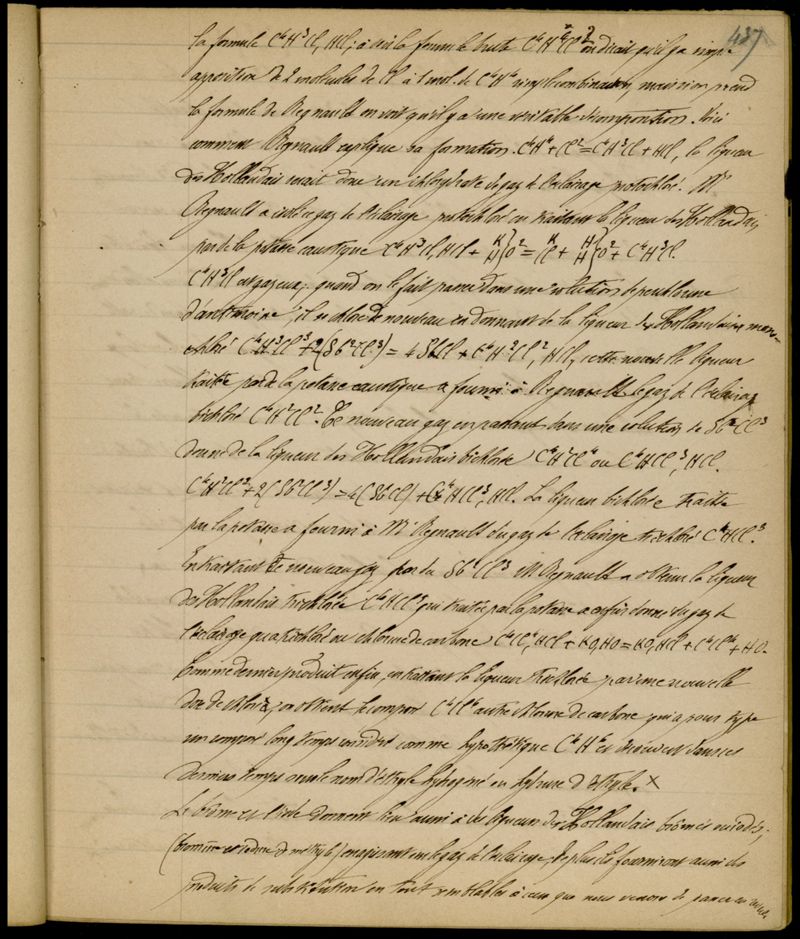 437
la formule C⁴H³Cl, HCl; à voir la formule brute C⁴H⁴Cl² on dirait qu'il y a simple
apposition de 2 molecules de Cl à 1 mol. de C⁴H⁴ simple combinaison, mais si on prend
la formule de Regnault on voit qu'il y a une véritable décomposition. Voici
comment Regnault explique sa formation. C⁴H⁴ + Cl² = C⁴H³Cl + HCl, la liqueur
des Hollandais serait donc un chlorhydrate de gaz de l'eclairage protochloré. Mr
Regnault a isolé ce gaz de l'eclairage protochloré en traitant la liqueur des Hollandais
par de la potasse caustique C⁴H³Cl, HCl + K H} O² = K Cl + H H} O² + C⁴H³Cl.
C⁴H³Cl est gazeux; quand on le fait passer dans une solution de perchlorure
d'antimoine, il se chlore de nouveau en donnant de la liqueur des Hollandais mono-
chloré C⁴H³Cl + 2(Sb²Cl³) = 4 SbCl + C⁴H²Cl², HCl, cette nouvelle liqueur
traitée par de la potasse caustique a fourni à Regnault le gaz de l'eclairage
bichloré C⁴H²Cl². Ce nouveau gaz en passant dans une solution de Sb²Cl³
donne de la liqueur des Hollandais bichlorée C⁴H²Cl⁴ ou C⁴HCl³, HCl.
C⁴H²Cl² + 2(Sb²Cl³) = 4(SbCl) + C⁴HCl³, HCl. La liqueur bichlorée traitée
par la potasse a fourni à Mr Regnault du gaz de l'eclairage trichloré C⁴HCl³.
En traitant ce nouveau gaz par du Sb²Cl³ M. Regnault a obtenu la liqueur
des Hollandais trichlorée C⁴HCl⁵ qui traitée par la potasse a enfin donné du gaz de
l'eclairage quadrichloré ou chlorure de carbone C⁴Cl⁴, HCl + KO, HO = KO, HCl + C⁴Cl⁴ + HO.
Comme dernier produit enfin, en traitant la liqueur trichlorée par une nouvelle
dose de chlore, on obtient le composé C⁴Cl⁶ autre chlorure de carbone qui a pour type
un composé long temps considéré comme hypothétique C⁴H⁶ et découvert dans ces
derniers temps sous le nom d'éthyle hydrogéné ou hydrure d'éthyle. ×
Le brôme et l'iode donnent lieu aussi à des liqueurs des Hollandais brômées ou iodées;
(bromure et iodure de méthyle) en agissant sur le gaz de l'eclairage, de plus ils fourniront aussi des
produits de substitution en tout semblables à ceux que nous venons de passer en revue